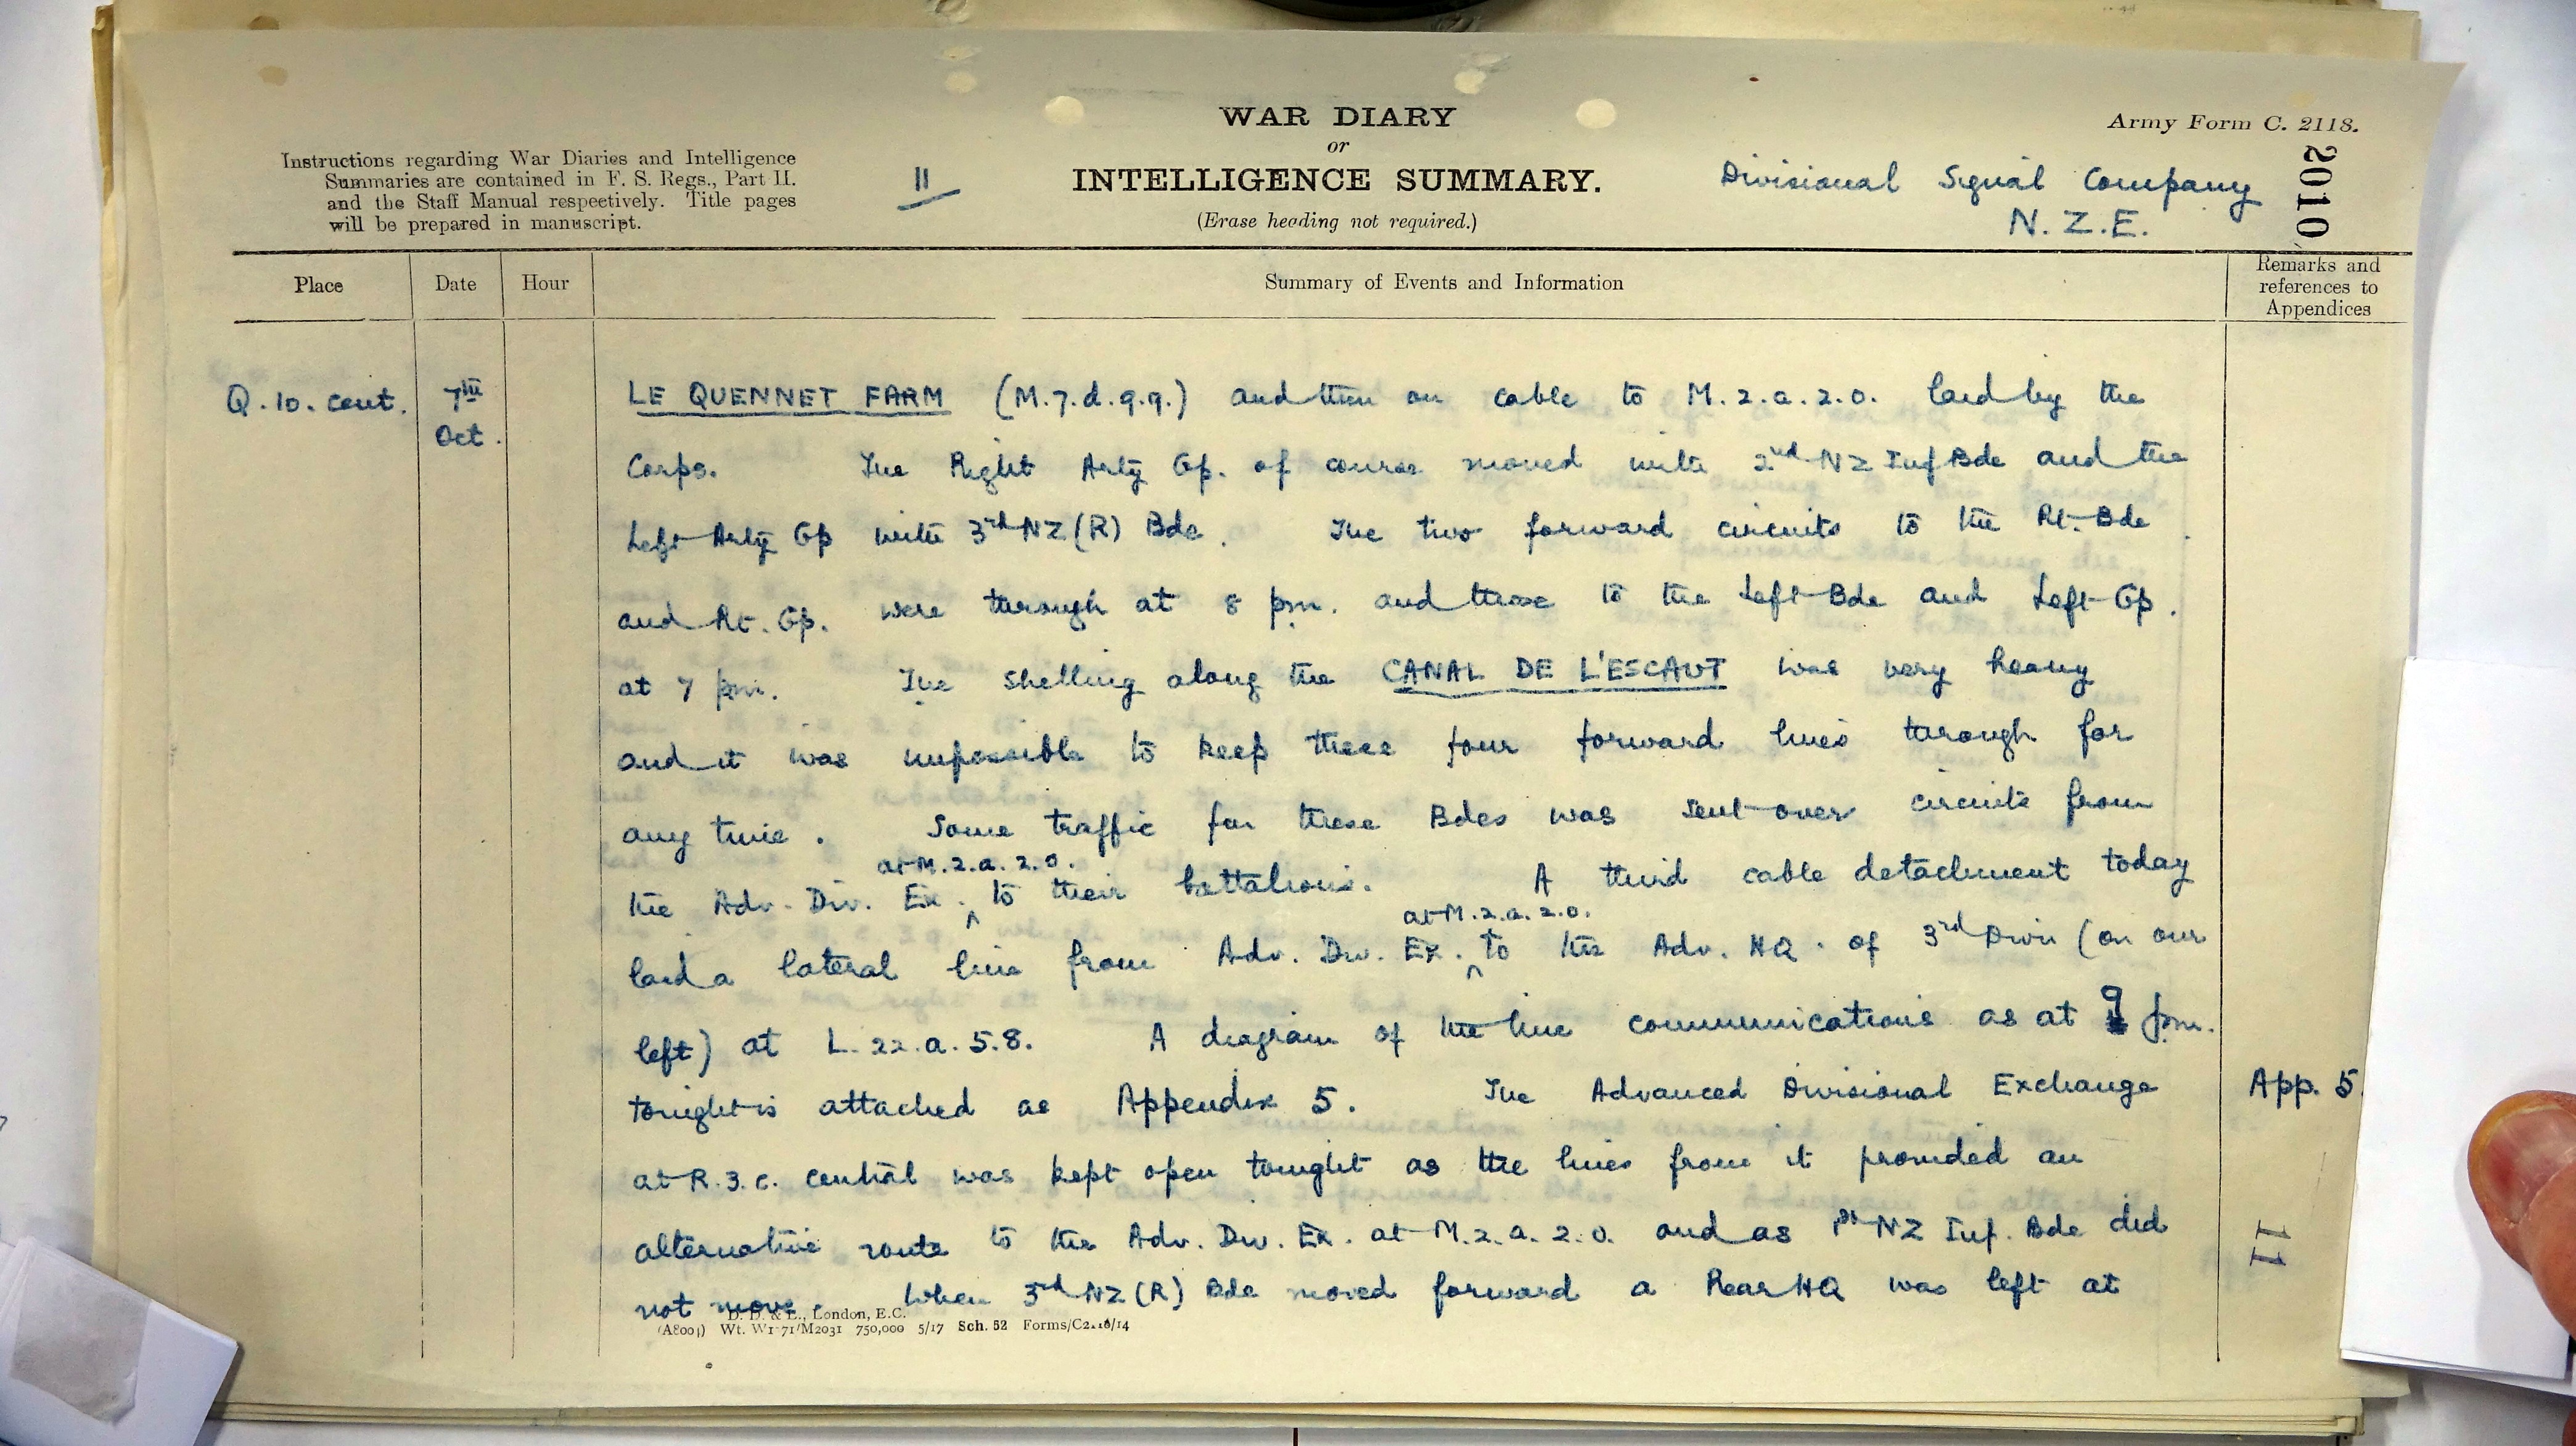 WAR DIARY
or
INTELLIGENCE SUMMARY.
(Erase heading not required.)
Army Form C. 2118.
Instructions regarding War Diaries and Intelligence
Summaries are contained in F. S. Regs., Part II.
and the Staff Manual respectively. Title pages
will be prepared in manuscript.
11
Divisional Signal Company
N.Z.E.
2010
Place
Date
Hour
Summary of Events and Information
Remarks and
references to
Appendices
Q.10. cent.
7th
Oct.
LE QUENNET FARM (M.7.d.9.9.) and then on cable to M.2.a.2.0. laid by the
Corps. The Right Arty Gp. of course moved with 2nd NZ Inf Bde and the
Left Arty Gp with 3rd NZ (R) Bde. The two forward circuits to the Rt. Bde
and Rt. Gp. were through at 8 pm. and those to the Left Bde and Left Gp.
at 7 pm. The shelling along the CANAL DE L'ESCAUT was very heavy
and it was impossible to keep these four forward lines through for
any time. Some traffic for these Bdes was sent over circuits from
the Adv. Div. Ex. at M.2.a.2.0. to their battalions. A third cable detachment today
laid a lateral line from Adv. Div. Ex. at M.2.a.2.0. to the Adv. HQ. of 3rd Divn (on our
left) at L.22.a.5.8. A diagram of the line communications as at 9 pm.
tonight is attached as Appendix 5. The Advanced Divisional Exchange
App. 5
at R.3.c. central was kept open tonight as the lines from it provided an
alternative route to the Adv. Div. Ex. at M.2.a.2.0. and as 1st NZ Inf. Bde did
not move. When 3rd NZ (R) Bde moved forward a Rear HQ was left at
11
D. D. & E., London, E.C.
(A8004) Wt. W1771/M2031 750,000 5/17 Sch. 52 Forms/C2118/14